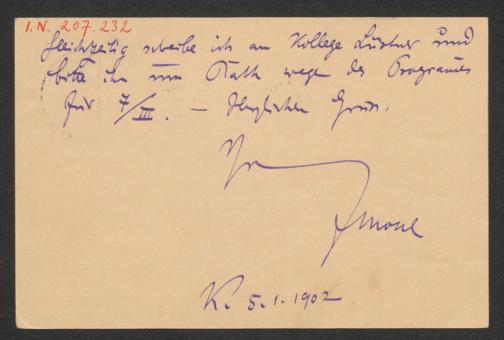 I.N. 207.232
Gleichzeitig schreibe ich an Kollege Lustner und
bitte ihn um Rath wegen des Programms
für 7/III. – Herzlichen Gruss.
Ihr
K. 5.1.1902